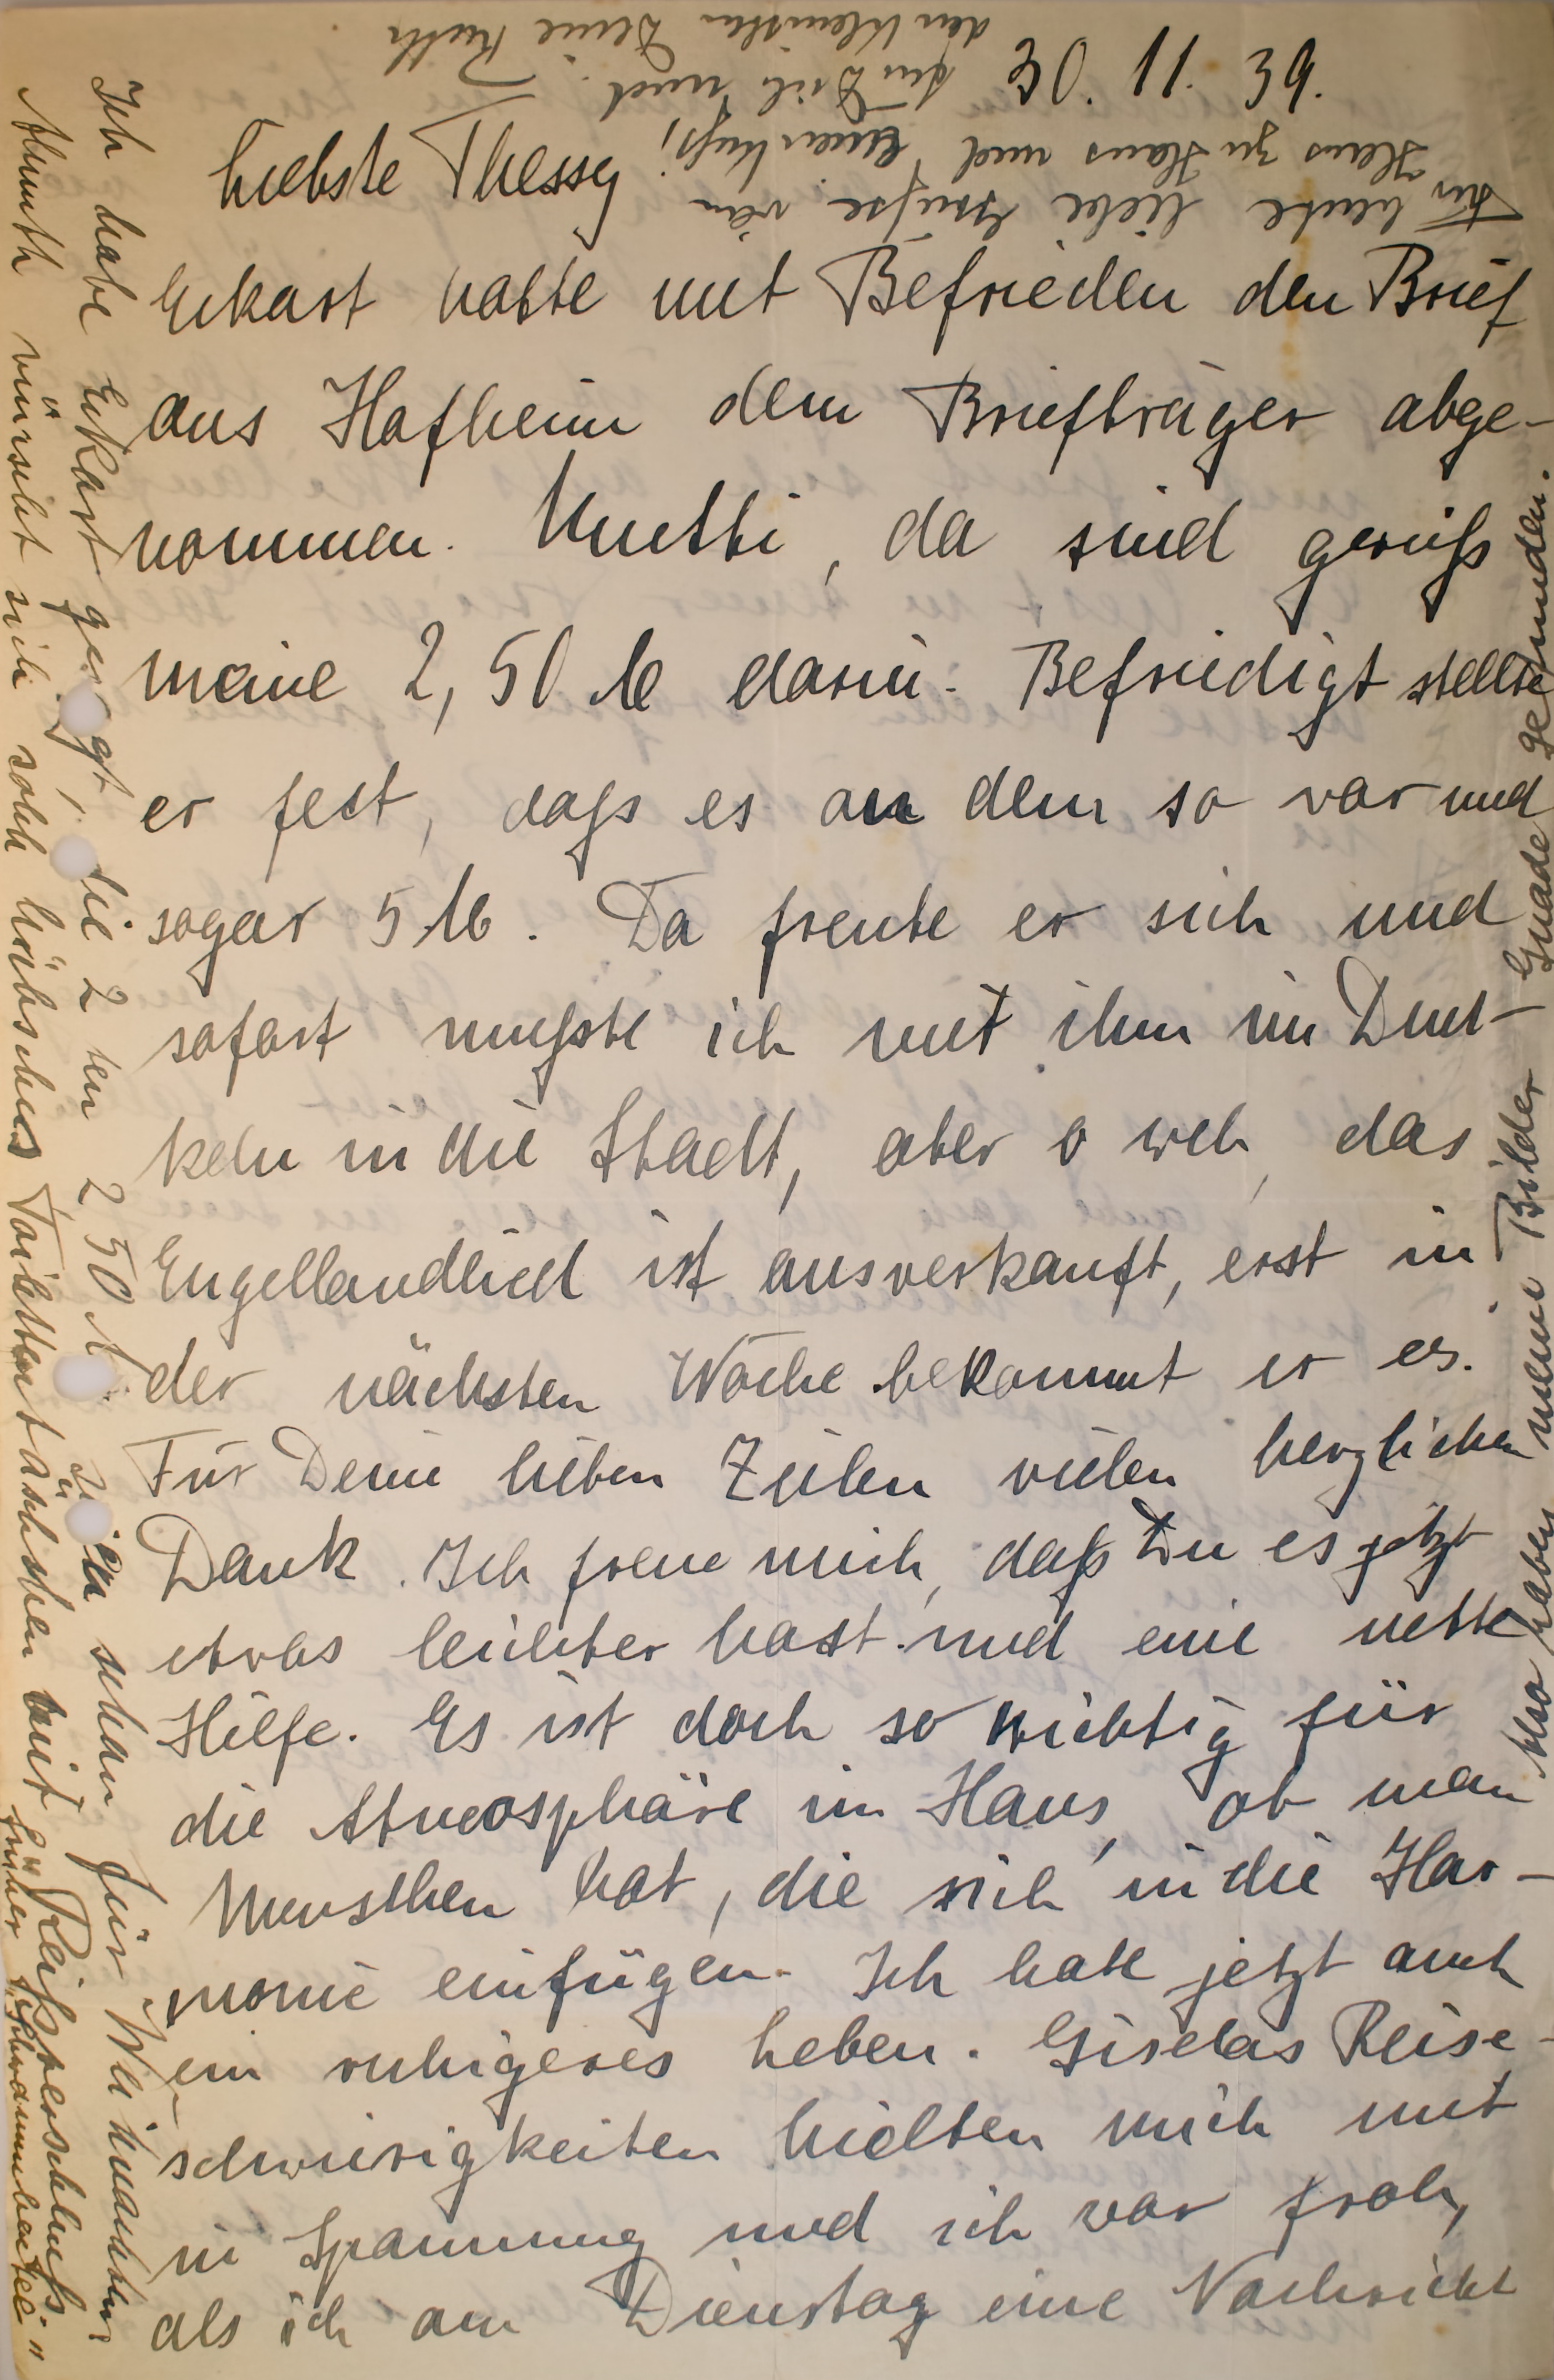 30. 11. 39.
Liebste Thessy!
Eckart hatte mit Befrieden den Brief
aus Hofheim dem Briefträger abge-
nommen. Mutti, da sind gewiß
meine 2,50 M darin. Befriedigt stellte
er fest, daß es an dem so war und
sogar 5 M. Da freute er sich und
sofort mußte ich mit ihm im Dun-
keln in die Stadt, aber o weh, das
Engellandlied ist ausverkauft, erst in
der nächsten Woche bekommt er es.
Für Deine lieben Zeilen vielen herzlichen
Dank. Ich freue mich, daß Du es jetzt
etwas leichter hast und eine nette
Hilfe. Es ist doch so wichtig für
die Atmosphäre im Haus, ob man
Menschen hat, die sich in die Har-
monie einfügen. Ich habe jetzt auch
ein ruhigeres Leben. Giselas Reise-
schwierigkeiten hielten mich mit
in Spannung und ich war froh,
als ich am Dienstag eine Nachricht
Also haben meine Bilder Gnade gefunden.
Ich habe Eckart gesagt, die 2 ten 2 50 M. schon für Weihnachten
Almuth wünscht sich solch hübsches Toilettentäschchen mit Reißverschluß.
früher "Schwammbeutel"
Für heute liebe Grüße von
Haus zu Haus und einen Kuß,
den Kleinsten Deine Ruth